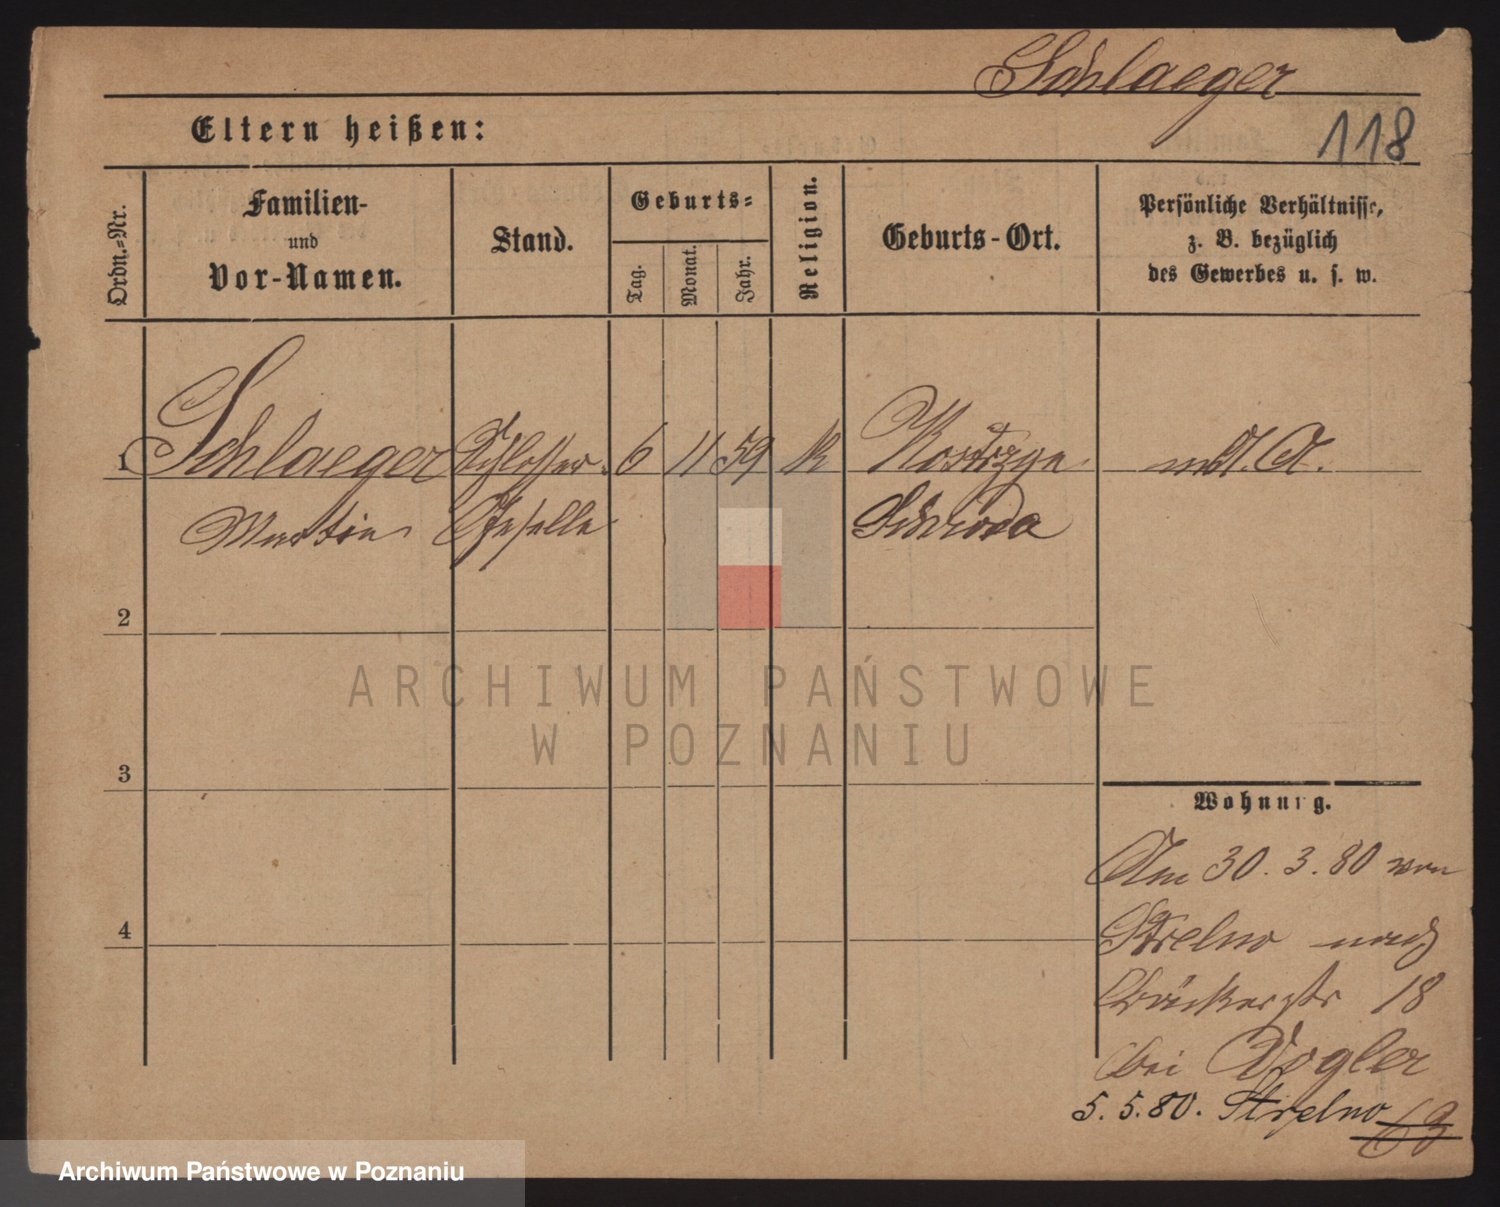 Schlaeger
118
Eltern heißen:
Ordn.-Nr.
Familien-
und
Vor-Namen.
Stand.
Geburts-
Tag.
Monat.
Jahr.
Religion.
Geburts-Ort.
Persönliche Verhältnisse,
z. B. bezüglich
des Gewerbes u. s. w.
1 Schlaeger Schlosser 6 11 59 K
Martin Geselle Schroda
2
3
4
ARCHIWUM PAŃSTWOWE
W POZNANIU
Wohnung.
Am 30. 3. 80 von
Strelno nach
Bäckerstr 18
bei Vogler
5. 5. 80. Strelno
63
Archiwum Państwowe w Poznaniu